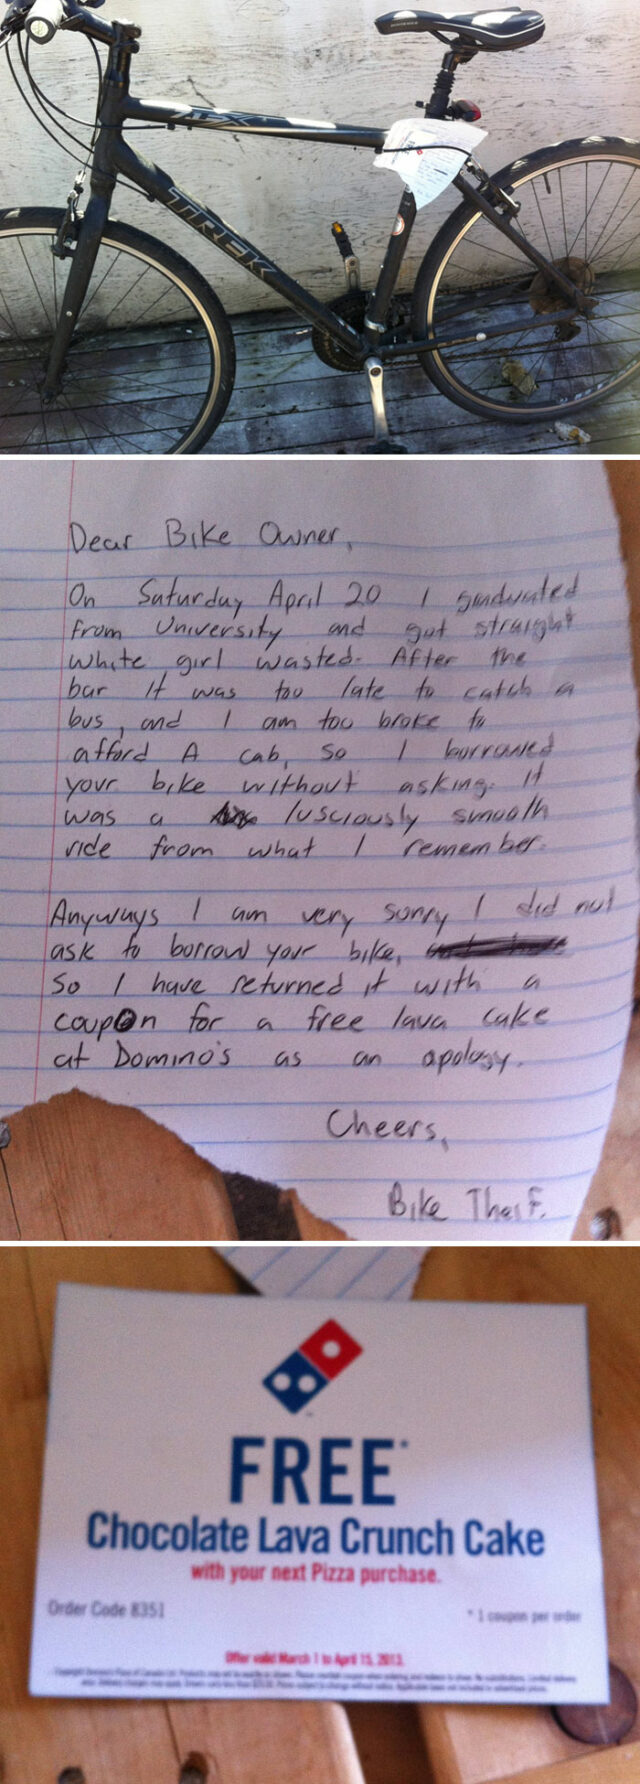 TREK
Dear Bike Owner,
On Saturday April 20 I graduated
from University and got straight
white girl wasted. After the
bar it was too late to catch a
bus, and I am too broke to
afford A cab, so I borrowed
your bike without asking. it
was a lusciously smooth
ride from what I remember.
Anyways I am very sorry I did not
ask to borrow your bike,
so I have returned it with a
coupon for a free lava cake
at Domino's as an apology.
Cheers,
Bike Theif.
FREE*
Chocolate Lava Crunch Cake
with your next Pizza purchase.
Order Code 8351
* 1 coupon per order
Offer valid March 1 to April 15, 2013.